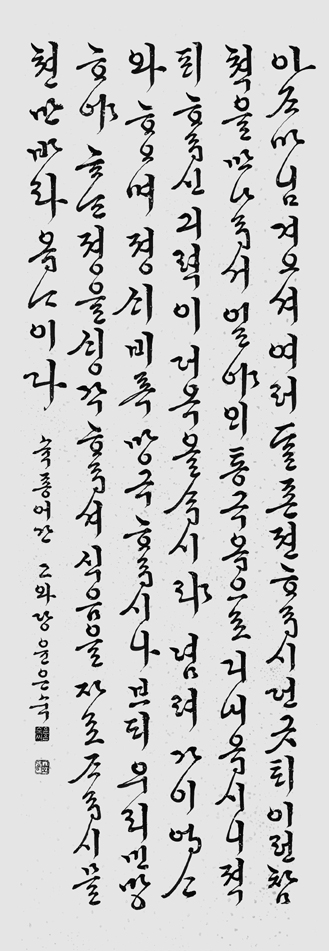 아ᄌᆞ마님겨오셔 여러 ᄃᆞᆯ 쵼젼ᄒᆞᄋᆞᆸ시던 긋ᄐᆡ 이런 참
쳑을 만나ᄋᆞᆸ셔 일야의 통곡으로 디내ᄋᆞᆸ시니 젹
ᄑᆡᄒᆞᄋᆞᆸ신 긔력이 더옥 시랴 념려 ᄀᆞ이 업ᄉᆞ
와 ᄒᆞ오며 졍니 비록 망극ᄒᆞᄋᆞᆸ시나 브ᄃᆡ 우리 민망
ᄒᆞ야 ᄒᆞᄂᆞᆫ 졍을 ᄉᆡᆼ각ᄒᆞᄋᆞᆸ셔 식음을 ᄌᆞ로 ᄌᆞᄋᆞᆸ시믈
쳔만 ᄇᆞ라ᄋᆞᆸᄂᆞ이다
숙종어간 고와당 윤은숙